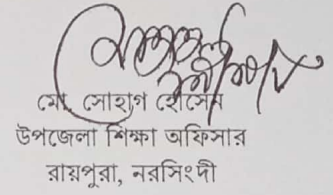 মো. সোহাগ হোসেন
উপজেলা শিক্ষা অফিসার
রায়পুরা, নরসিংদী